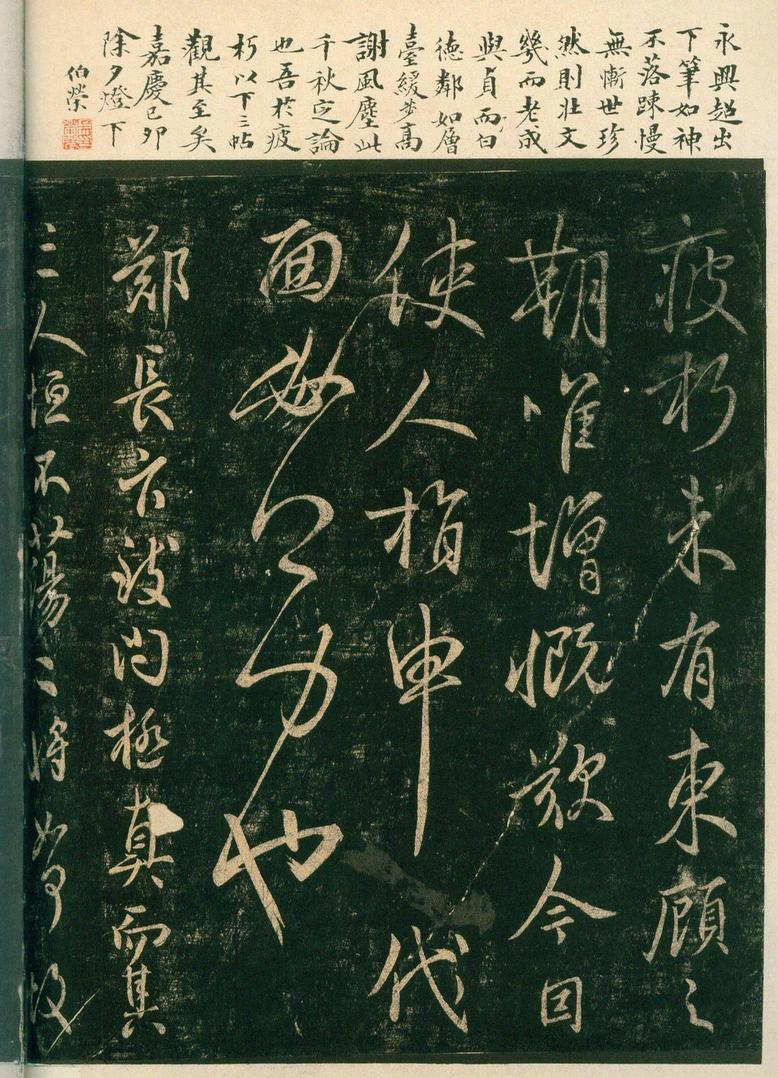 永興超出
下筆如神
不落疎慢
無慚世珍
然則壯文
幾而老成
與貞而白
德鄰如層
臺緩步高
謝風塵此
千秋定論
也吾於疲
朽以下三帖
觀其至矣
嘉慶己卯
除夕燈下
伯榮
疲朽未有東顧之
期唯增慨歎今因
使人指申代
面
鄭長官致問極真而其
三人恒不蕩〻將如何故